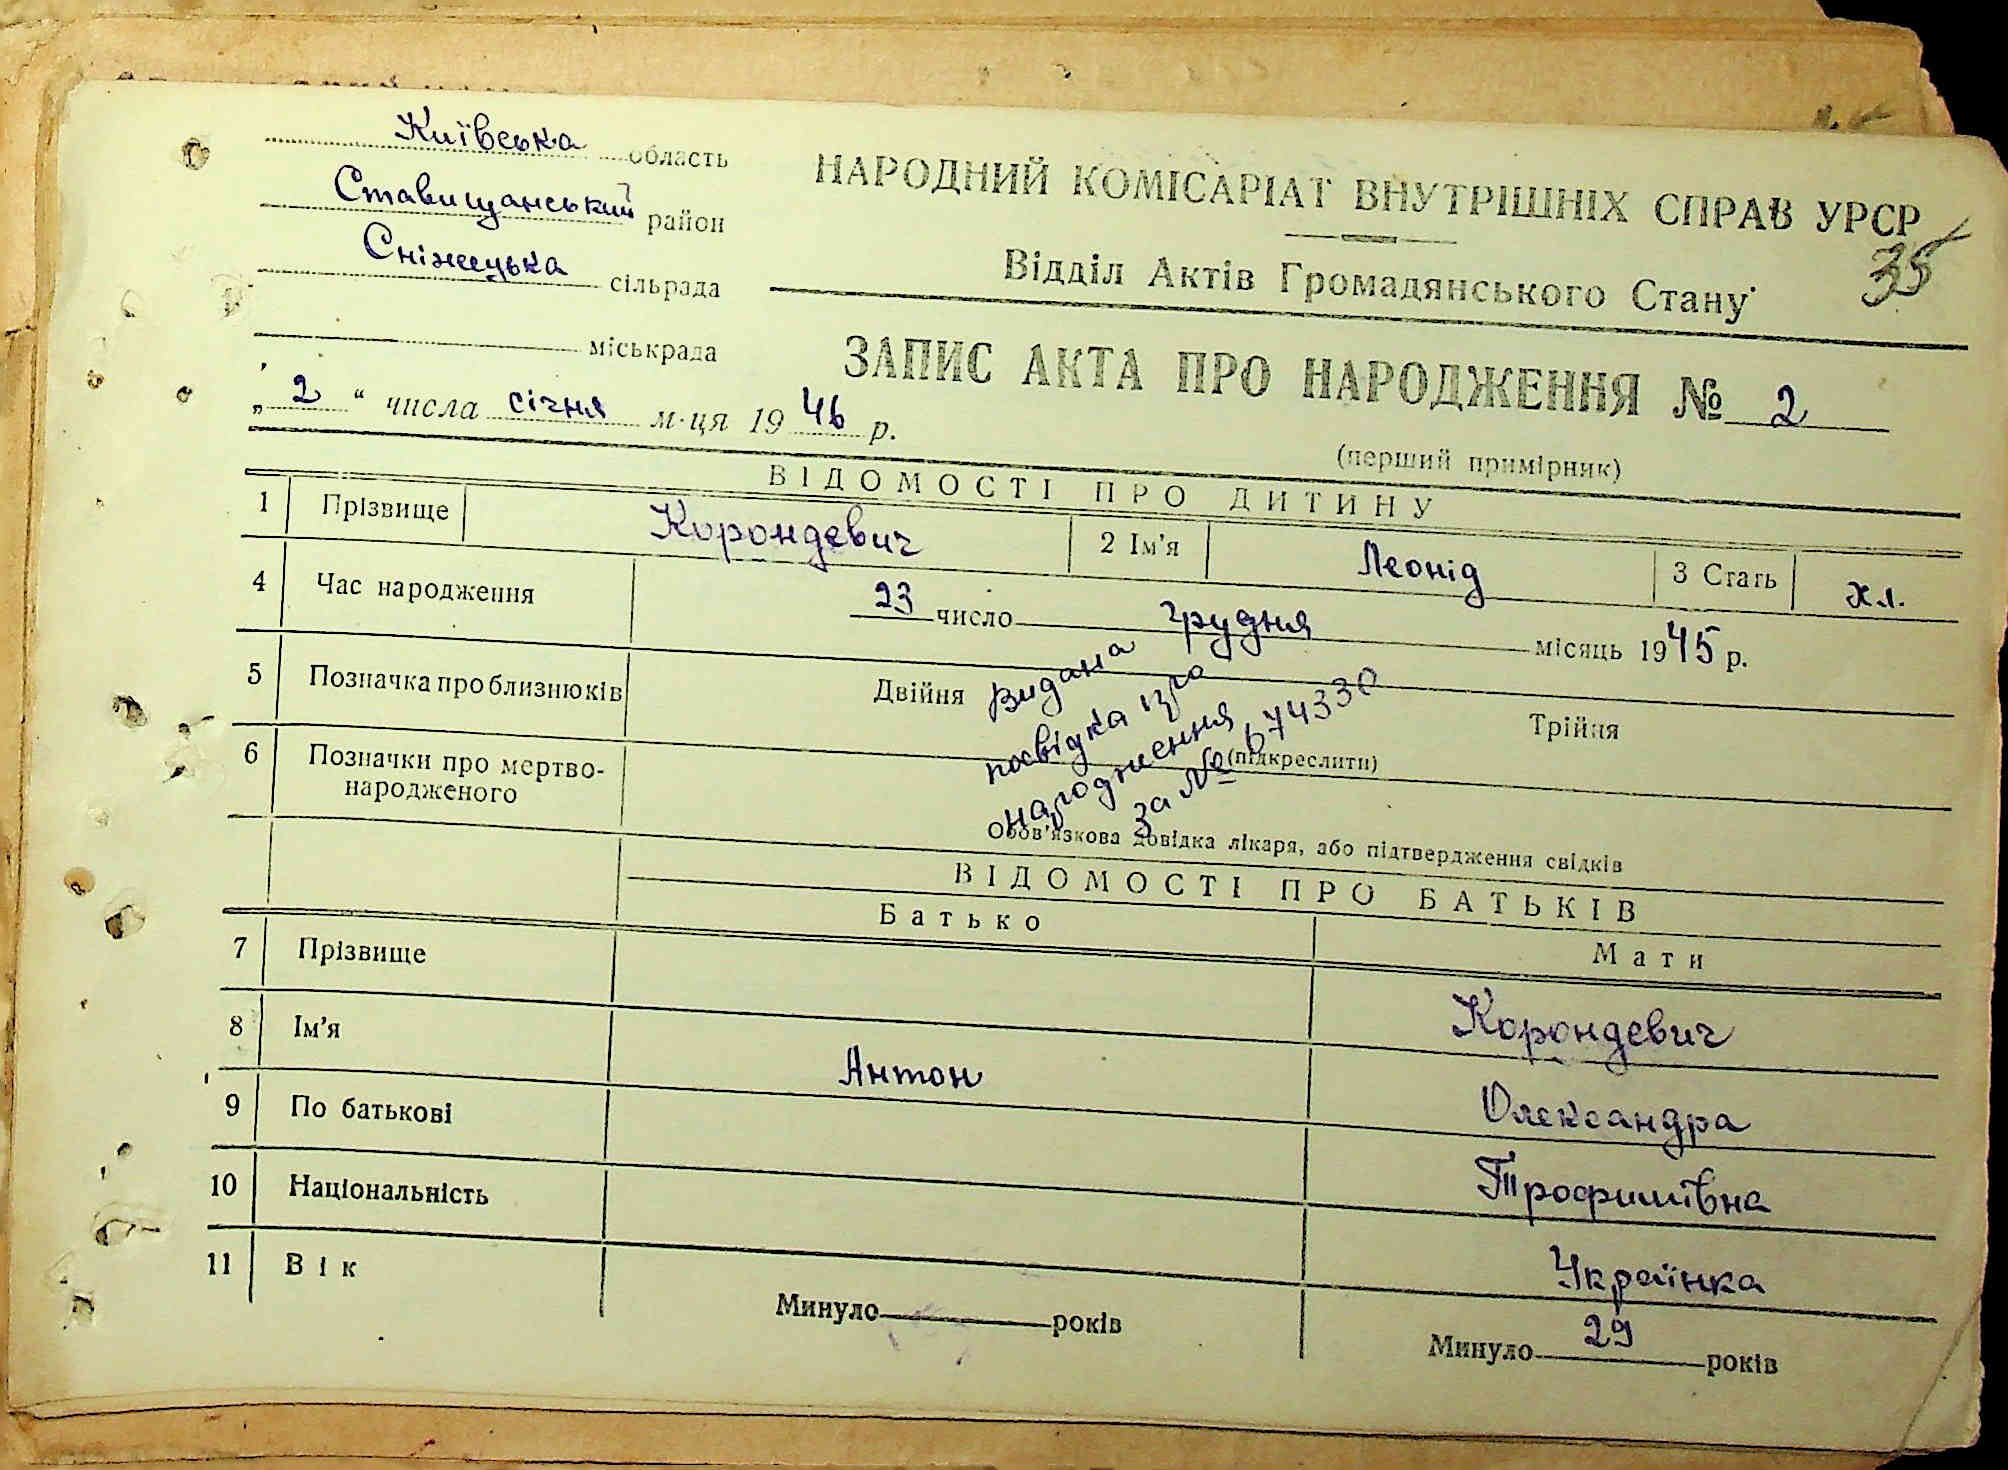 Київська область
Ставищанський район
Сніжецька сільрада
міськрада
„ 2 “ числа січня м-ця 1946 р.
НАРОДНИЙ КОМІСАРІАТ ВНУТРІШНІХ СПРАВ УРСР
35
Відділ Актів Громадянського Стану
ЗАПИС АКТА ПРО НАРОДЖЕННЯ № 2
(перший примірник)
ВІДОМОСТІ ПРО ДИТИНУ
1 Прізвище Корондевич 2 Ім'я Леонід 3 Стать хл.
4 Час народження 23 число грудня місяць 1945 р.
5 Позначка про близнюків Двійня Трійня
(підкреслити)
видана
посвідка про
народження
за № 674330
6 Позначки про мертво-
народженого
Обов'язкова довідка лікаря, або підтвердження свідків
ВІДОМОСТІ ПРО БАТЬКІВ
Батько Мати
7 Прізвище Корондевич
8 Ім'я Антон Олександра
9 По батькові Трофимівна
10 Національність Українка
11 Вік Минуло років Минуло 29 років